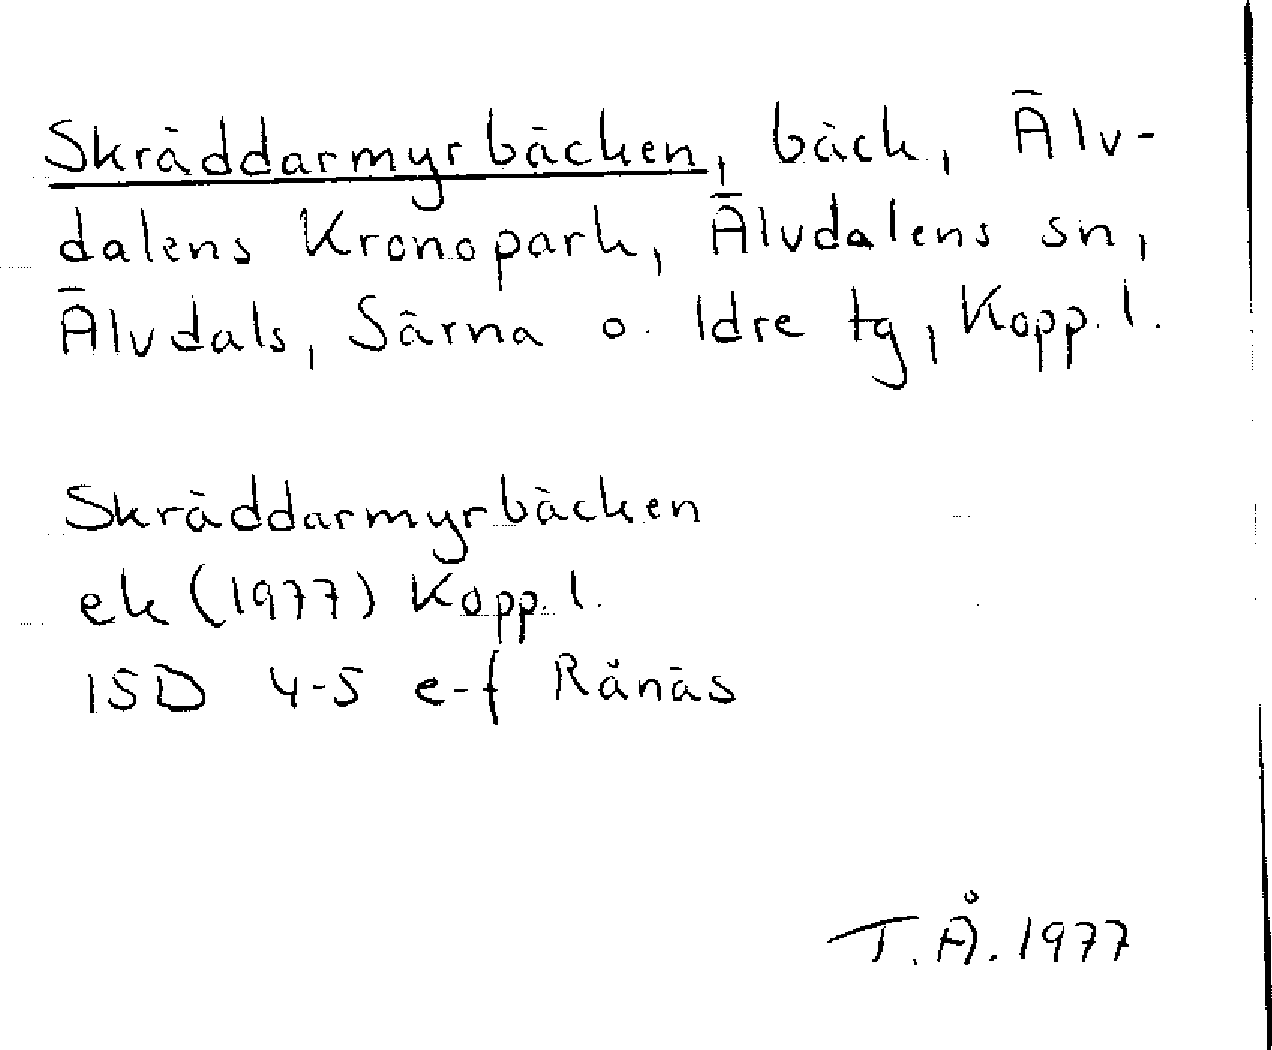 Skräddarmyrbäcken, bäck, Älv-
dalens Kronopark, Älvdalens sn,
Älvdals, Särna o. Idre tg, Kopp. l.
Skräddarmyrbäcken
ek (1977) Kopp. l.
15D 4-5 e-f Rånäs
T. Å. 1977